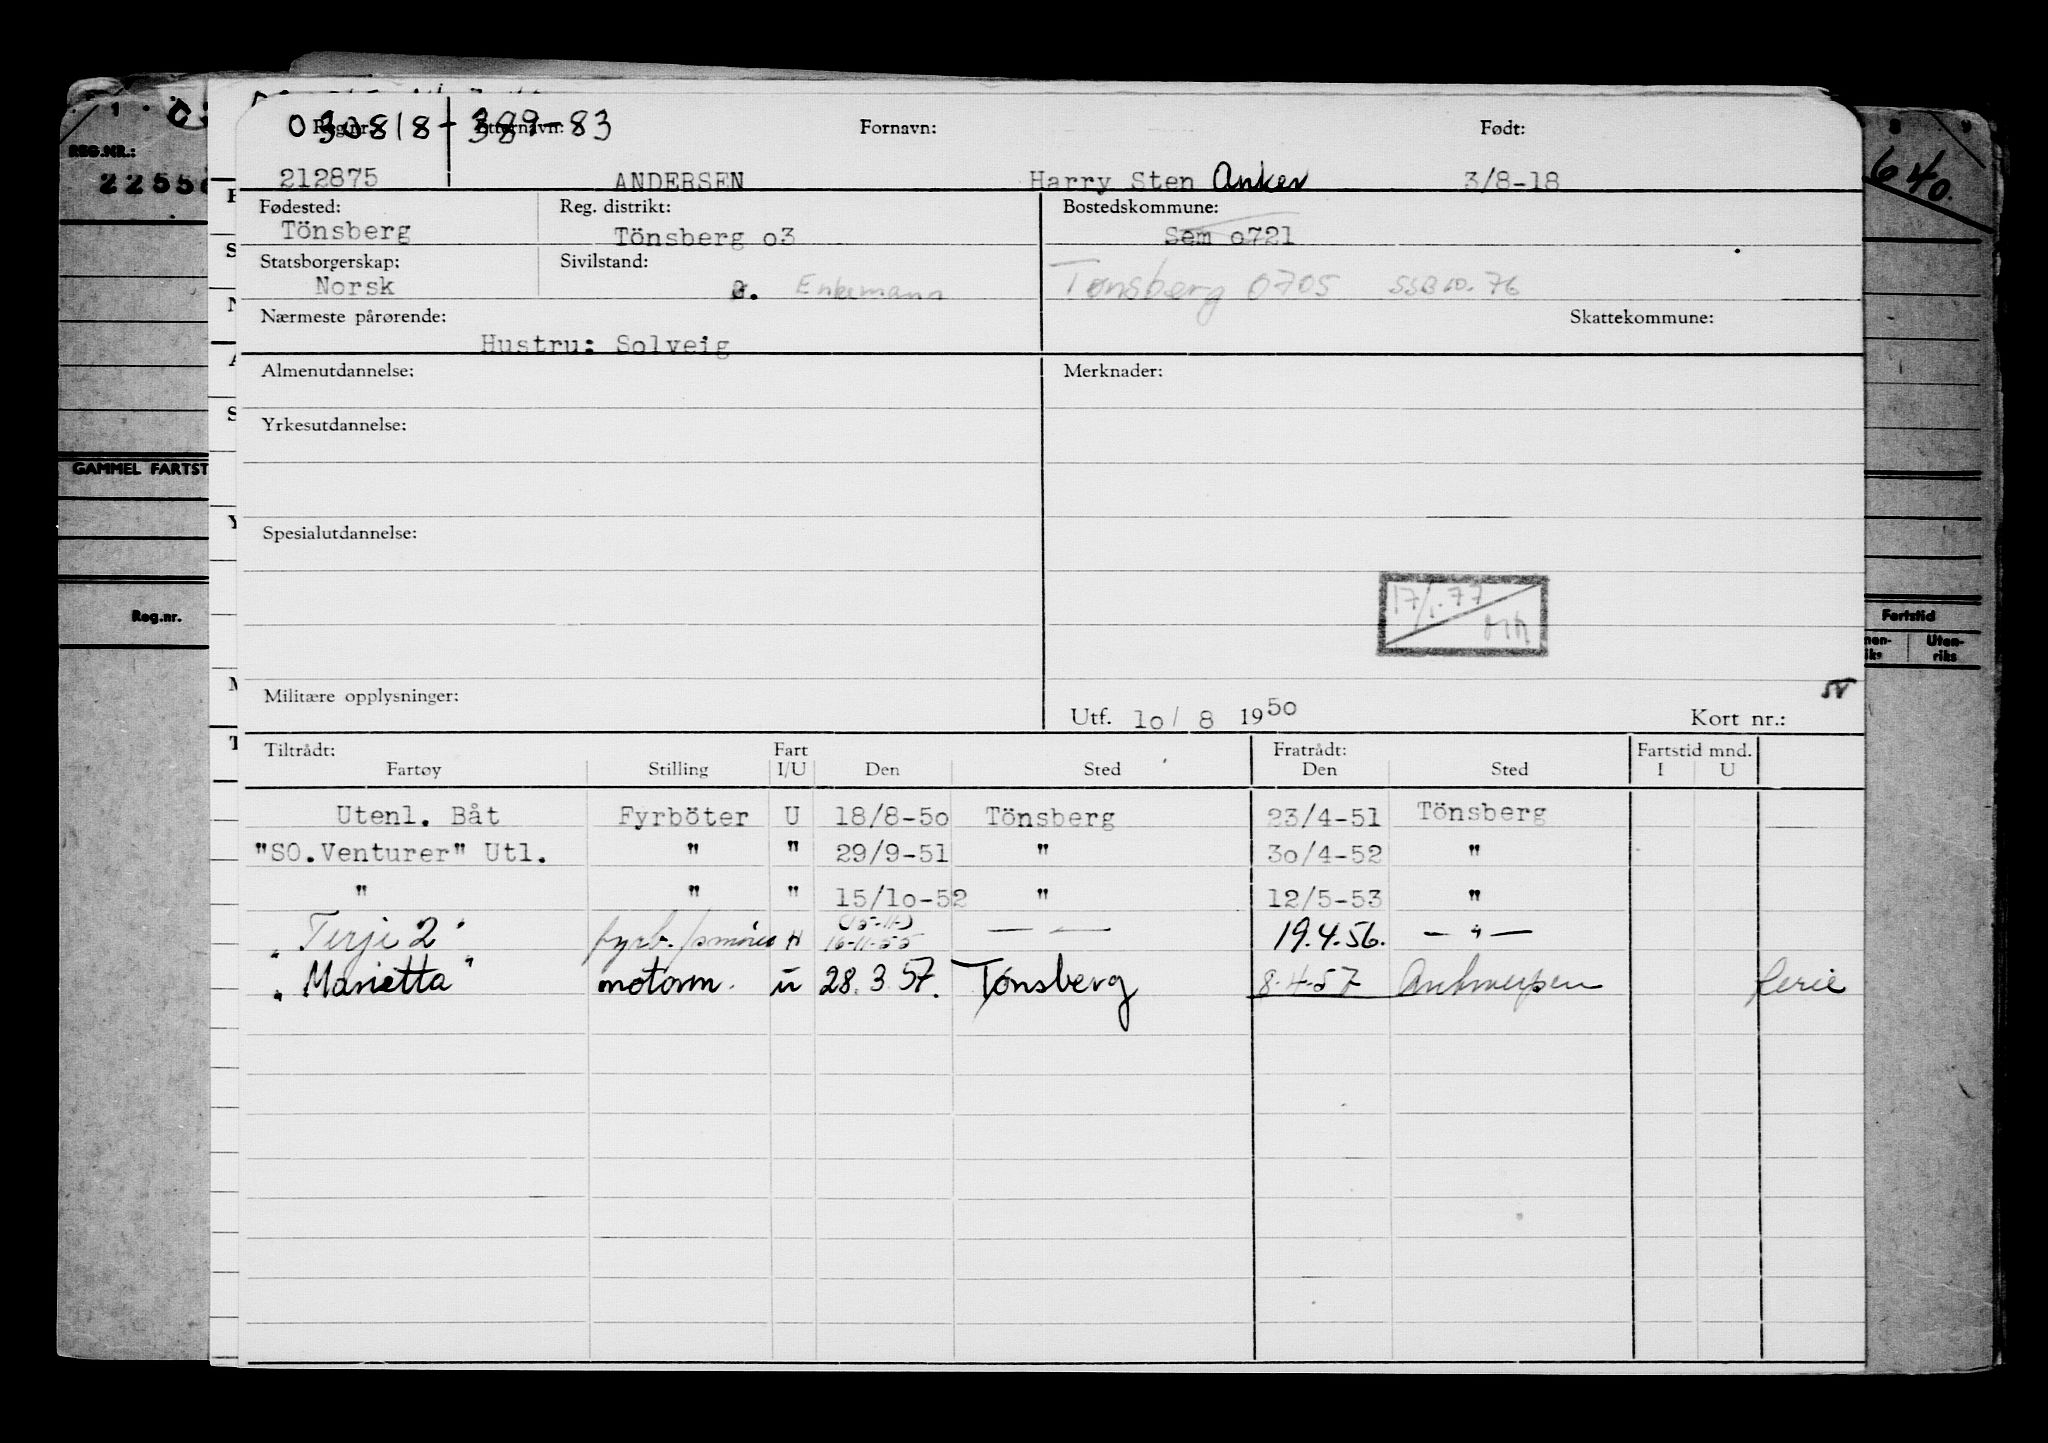 030818-389-83
Reg.nr. Etternavn: Fornavn: Født:
212875 ANDERSEN Harry Sten Anker 3/8-18
Fødested: Reg. distrikt: Bostedskommune:
Tönsberg Tönsberg o3 Sem o721
Statsborgerskap: Sivilstand:
Norsk Enkemann Tønsberg 0705 SSB 10.76
Nærmeste pårørende: Skattekommune:
Hustru: Solveig
Almenutdannelse: Merknader:
Yrkesutdannelse:
Spesialutdannelse:
17/1.77
Militære opplysninger:
Utf. 1o/ 8 1950 Kort nr.:
Tiltrådt: Fart Fratrådt: Fartstid mnd.
Fartøy Stilling I/U Den Sted Den Sted I U
Utenl. Båt Fyrböter U 18/8-5o Tönsberg 23/4-51 Tönsberg
"SO.Venturer" Utl. " " 29/9-51 " 3o/4-52 "
" " " 15/1o-52 " 12/5-53 "
"Terje 2" fyrb./smører 16-11-55 — — 19.4.56. — " —
"Marietta" motorm. u 28.3.57. Tønsberg 8.4.57 Antwerpen ferie
REG.NR.:
GAMMEL FARTST
Reg.nr.
8 9
640.
Fartstid
nen- Uten-
iks riks